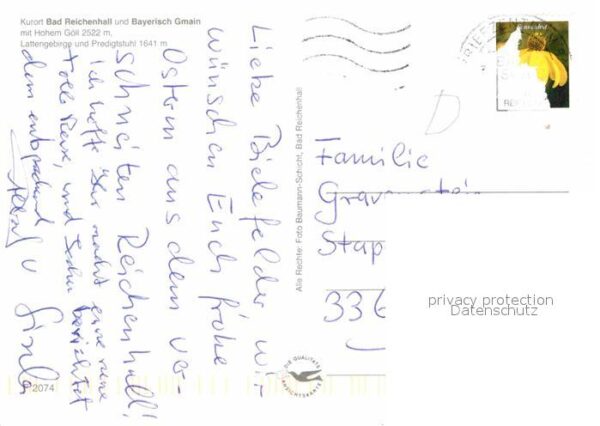 Kurort Bad Reichenhall und Bayerisch Gmain
mit Hohem Göll 2522 m,
Lattengebirge und Predigtstuhl 1641 m
Liebe Bielefelder wir
wünschen Euch frohe
Ostern aus dem ver-
schneiten Reichenhall!
Ich hoffe Ihr macht eine
tolle Reise, und
dem entsprechend
u
P 2074
Alle Rechte: Foto Baumann-Schicht, Bad Reichenhall
DIE QUALITÄTS
ANSICHTSKARTE
Familie
Stap
336
privacy protection
Datenschutz